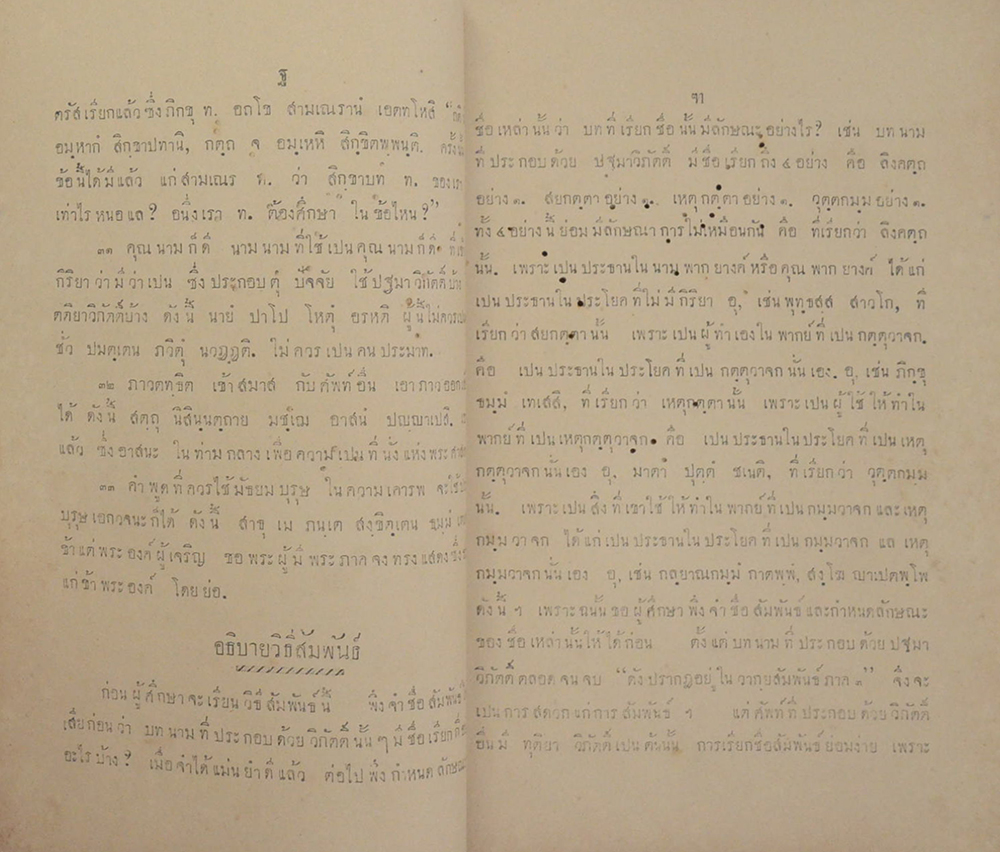 ฐ
ตรัสเรียกแล้วซึ่งภิกขุ ท. อถโข สามเณรานํ เอตทโหสิ “
อมฺหากํ สิกฺขาปทานิ, กตฺถ จ อมฺเหหิ สิกฺขิตพฺพนฺติ. ครั้งนั้น
ข้อนี้ได้มีแล้ว แก่สามเณร ท. ว่า สิกขาบท ท. ของเรา
เท่าไร หนอ แล? อนึ่งเรา ท. ต้องศึกษา ในข้อไหน?”
๓๑ คุณนามก็ดี นามนามที่ใช้เปนคุณนามก็ดี
กิริยาว่ามีว่าเปน ซึ่งประกอบ ตุํ ปัจจัย ใช้ปฐมาวิภัตติ์บ้าง
ตติยาวิภัตติ์บ้าง ดังนี้ นายํ ปาโป โหตุํ อรหติ ผู้นี้ไม่ควรเปน
ชั่ว ปมตฺเตน ภวิตุํ นวฏฺฏติ. ไม่ควรเปนคนประมาท.
๓๒ ภาวตทธิต เข้าสมาส กับศัพท์อื่น เอาภาวออกเสีย
ได้ ดังนี้ สตฺถุ นิสินฺนตฺถาย มชฺเฌ อาสนํ ปญฺญาเปสิ.
แล้ว ซึ่งอาสนะ ในท่ามกลาง เพื่อความเปนที่นั่งแห่งพระศาสดา
๓๓ คำพูดที่ควรใช้มัธยมบุรุษ ในความเคารพ
บุรุษเอกวจนะก็ได้ ดังนี้ สาธุ เม ภนฺเต สงฺขิตฺเตน ธมฺมํ
ข้าแต่พระองค์ผู้เจริญ ขอพระผู้มีพระภาคจงทรงแสดงซึ่ง
แก่ข้าพระองค์ โดยย่อ.
อธิบายวิธีสัมพันธ์
ก่อนผู้ศึกษาจะเรียนวิธีสัมพันธ์นี้ พึงจำชื่อสัมพันธ์
เสียก่อนว่า บทนามที่ประกอบด้วยวิภัตติ์นั้น ๆ มีชื่อเรียก
อะไรบ้าง? เมื่อจำได้แม่นยำดีแล้ว ต่อไปพึงกำหนดลักษณะ
ชื่อเหล่านั้นว่า บทที่เรียกชื่อนั้นมีลักษณะอย่างไร? เช่น บทนาม
ที่ประกอบด้วย ปฐมาวิภัตติ์ มีชื่อเรียกถึง ๔ อย่าง คือ ลิงคตฺถ
อย่าง ๑. สยกตฺตา อย่าง ๑. เหตุกตฺตา อย่าง ๑. วุตฺตกมฺม อย่าง ๑.
ทั้ง ๔ อย่างนี้ย่อมมีลักษณาการไม่เหมือนกัน คือ ที่เรียกว่า ลิงคตฺถ
นั้น. เพราะเปนประธานในนามพากยางค์ หรือคุณพากยางค์ ได้แก่
เปนประธานในประโยคที่ไม่มีกิริยา อุ, เช่น พุทฺธสฺส สาวโก, ที่
เรียกว่าสยกตฺตานั้น เพราะเปนผู้ทำเองในพากย์ที่เปนกตฺตุวาจก.
คือ เปนประธานในประโยคที่เปน กตฺตุวาจกนั้นเอง. อุ, เช่น ภิกฺขุ
ธมฺมํ เทเสสิ, ที่เรียกว่า เหตุกตฺตานั้น เพราะเปนผู้ใช้ให้ทำใน
พากย์ที่เปนเหตุกตฺตุวาจก. คือ เปนประธานในประโยคที่เปน เหตุ
กตฺตุวาจกนั้นเอง อุ, มาตา ปุตฺตํ ชเนติ, ที่เรียกว่า วุตฺตกมฺม
นั้น. เพราะเปนสิ่งที่เขาใช้ให้ทำในพากย์ที่เปนกมฺมวาจก และเหตุ
กมฺมวาจก ได้แก่เปนประธานในประโยคที่เปนกมฺมวาจก แล เหตุ
กมฺมวาจกนั้นเอง อุ, เช่น กลฺยาณกมฺมํ กาตพฺพํ, สงฺโฆ ญาเปตพฺโพ
ดังนี้ ฯ เพราะฉนั้นขอผู้ศึกษาพึงจำชื่อสัมพันธ์ และกำหนดลักษณะ
ของชื่อเหล่านั้นให้ได้ก่อน ตั้งแต่บทนามที่ประกอบด้วยปฐมา
วิภัตติ์ตลอดจนจบ “ดังปรากฏอยู่ในวากยสัมพันธ์ภาค ๑” จึงจะ
เปนการสดวกแก่การสัมพันธ์ ฯ แต่ศัพท์ที่ประกอบด้วยวิภัตติ์
อื่นมี ทุติยา วิภัตติ์เปนต้นนั้น การเรียกชื่อสัมพันธ์ย่อมง่าย เพราะ